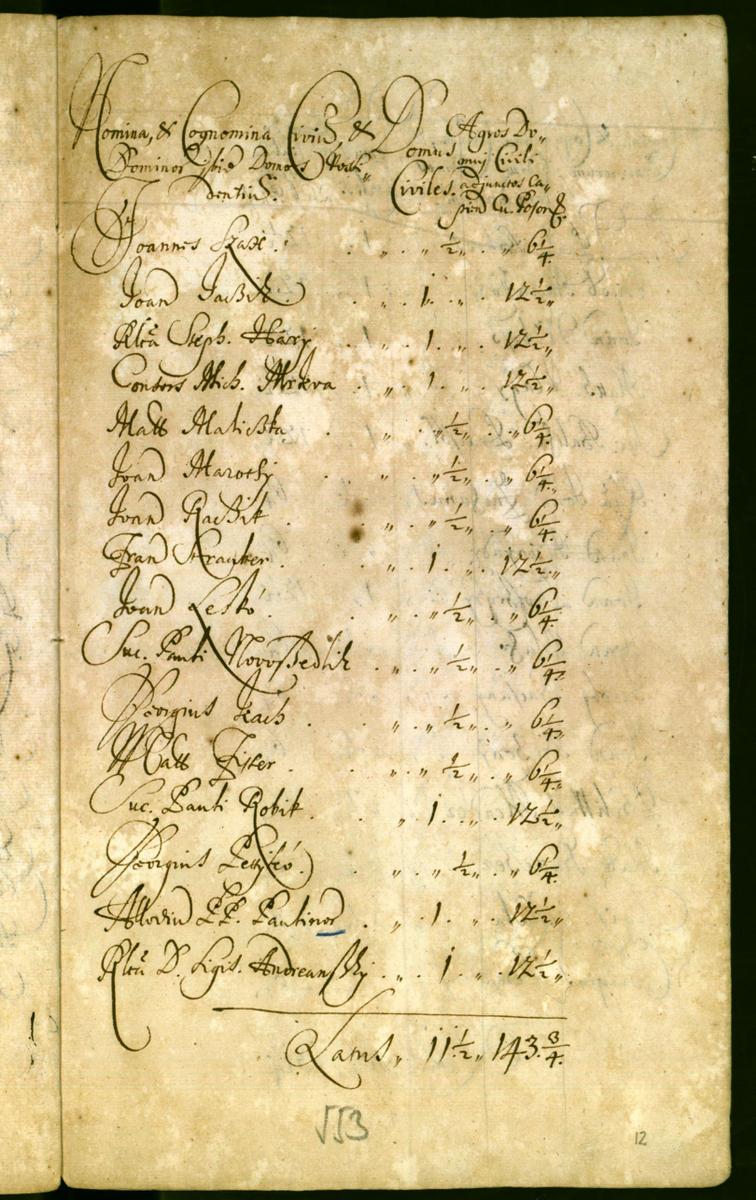 Nomina, & Cognomina Civiū, &
Dominor Domos Possi-
dentiū.
Domus
Civiles.
Agros Do-
mui Civili
adjunctos Ca-
piend Cu. Poson.
Joannes Szax . . „ „ ½ „ . „ 6¼
Joan . . „ . 1 . „ . 12½ „
Rltā Steph. Hary . . „ . 1 . „ . 12½ „
Consors Mich. Mrkva . „ . 1 . „ . 12½ „
Matt Maticska . . „ „ ½ „ . „ 6¼
Joan Marothy . . „ „ ½ „ . „ 6¼
Joan Racsik . . „ „ ½ „ . „ 6¼
Fran . . „ . 1 . „ . 12½ „
Joan Leskó . . „ „ ½ „ . „ 6¼
Suc. Pauli Novossedlik . „ „ ½ „ . „ 6¼
Georgius . . „ „ ½ „ . „ 6¼
Matt Fister . . „ „ ½ „ . „ 6¼
Suc. Pauli Robik . . „ 1 . „ . 12½ „
Georgius . . „ „ ½ „ . „ 6¼
Allodiū PP. Paulinor . „ . 1 . „ . 12½ „
Rltā D. Sigis. Andreansky . „ . 1 . „ . 12½ „
Latus „ 11½ „ 143 ¾
553
12